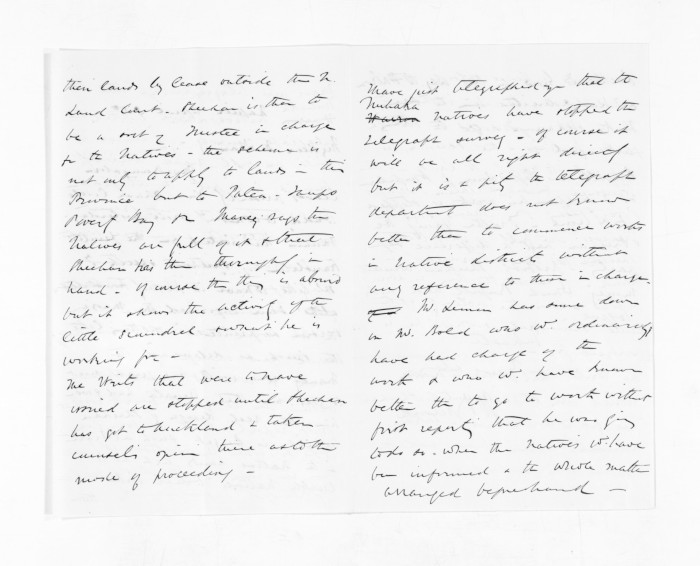 their lands by lease outside the N.
Land Court - Sheehan is then to
be a sort of Trustee in charge
for the Natives - the scheme is
not only to apply to lands in this
Province but to Patea - Taupo
Poverty Bay &c Maney says the
Natives are full of it & that
Sheehan has them thoroughly in
hand - Of course the thing is absurd
but it shows the activity of the
little scoundrel & what he is
working for -
The Writs that were to have
issued are stopped until Sheehan
has got to Auckland & taken
counsel's opinion there as to the
mode of proceeding -
I have just telegraphed you that the
Nuhaka
Natives have stopped the
telegraph survey - Of course it
will be all right directly
but it is a pity the telegraph
department does not know
better than to commence works
in Native districts without
any reference to those in charge.
Mr Lemon has some down
on Mr. Bold who wd. ordinarily
have had charge of the
work & who wd. have known
better than to go to work without
first reporting that he was going
to do so. when the Natives wd. have
been informed & the whole matter
arranged beforehand -